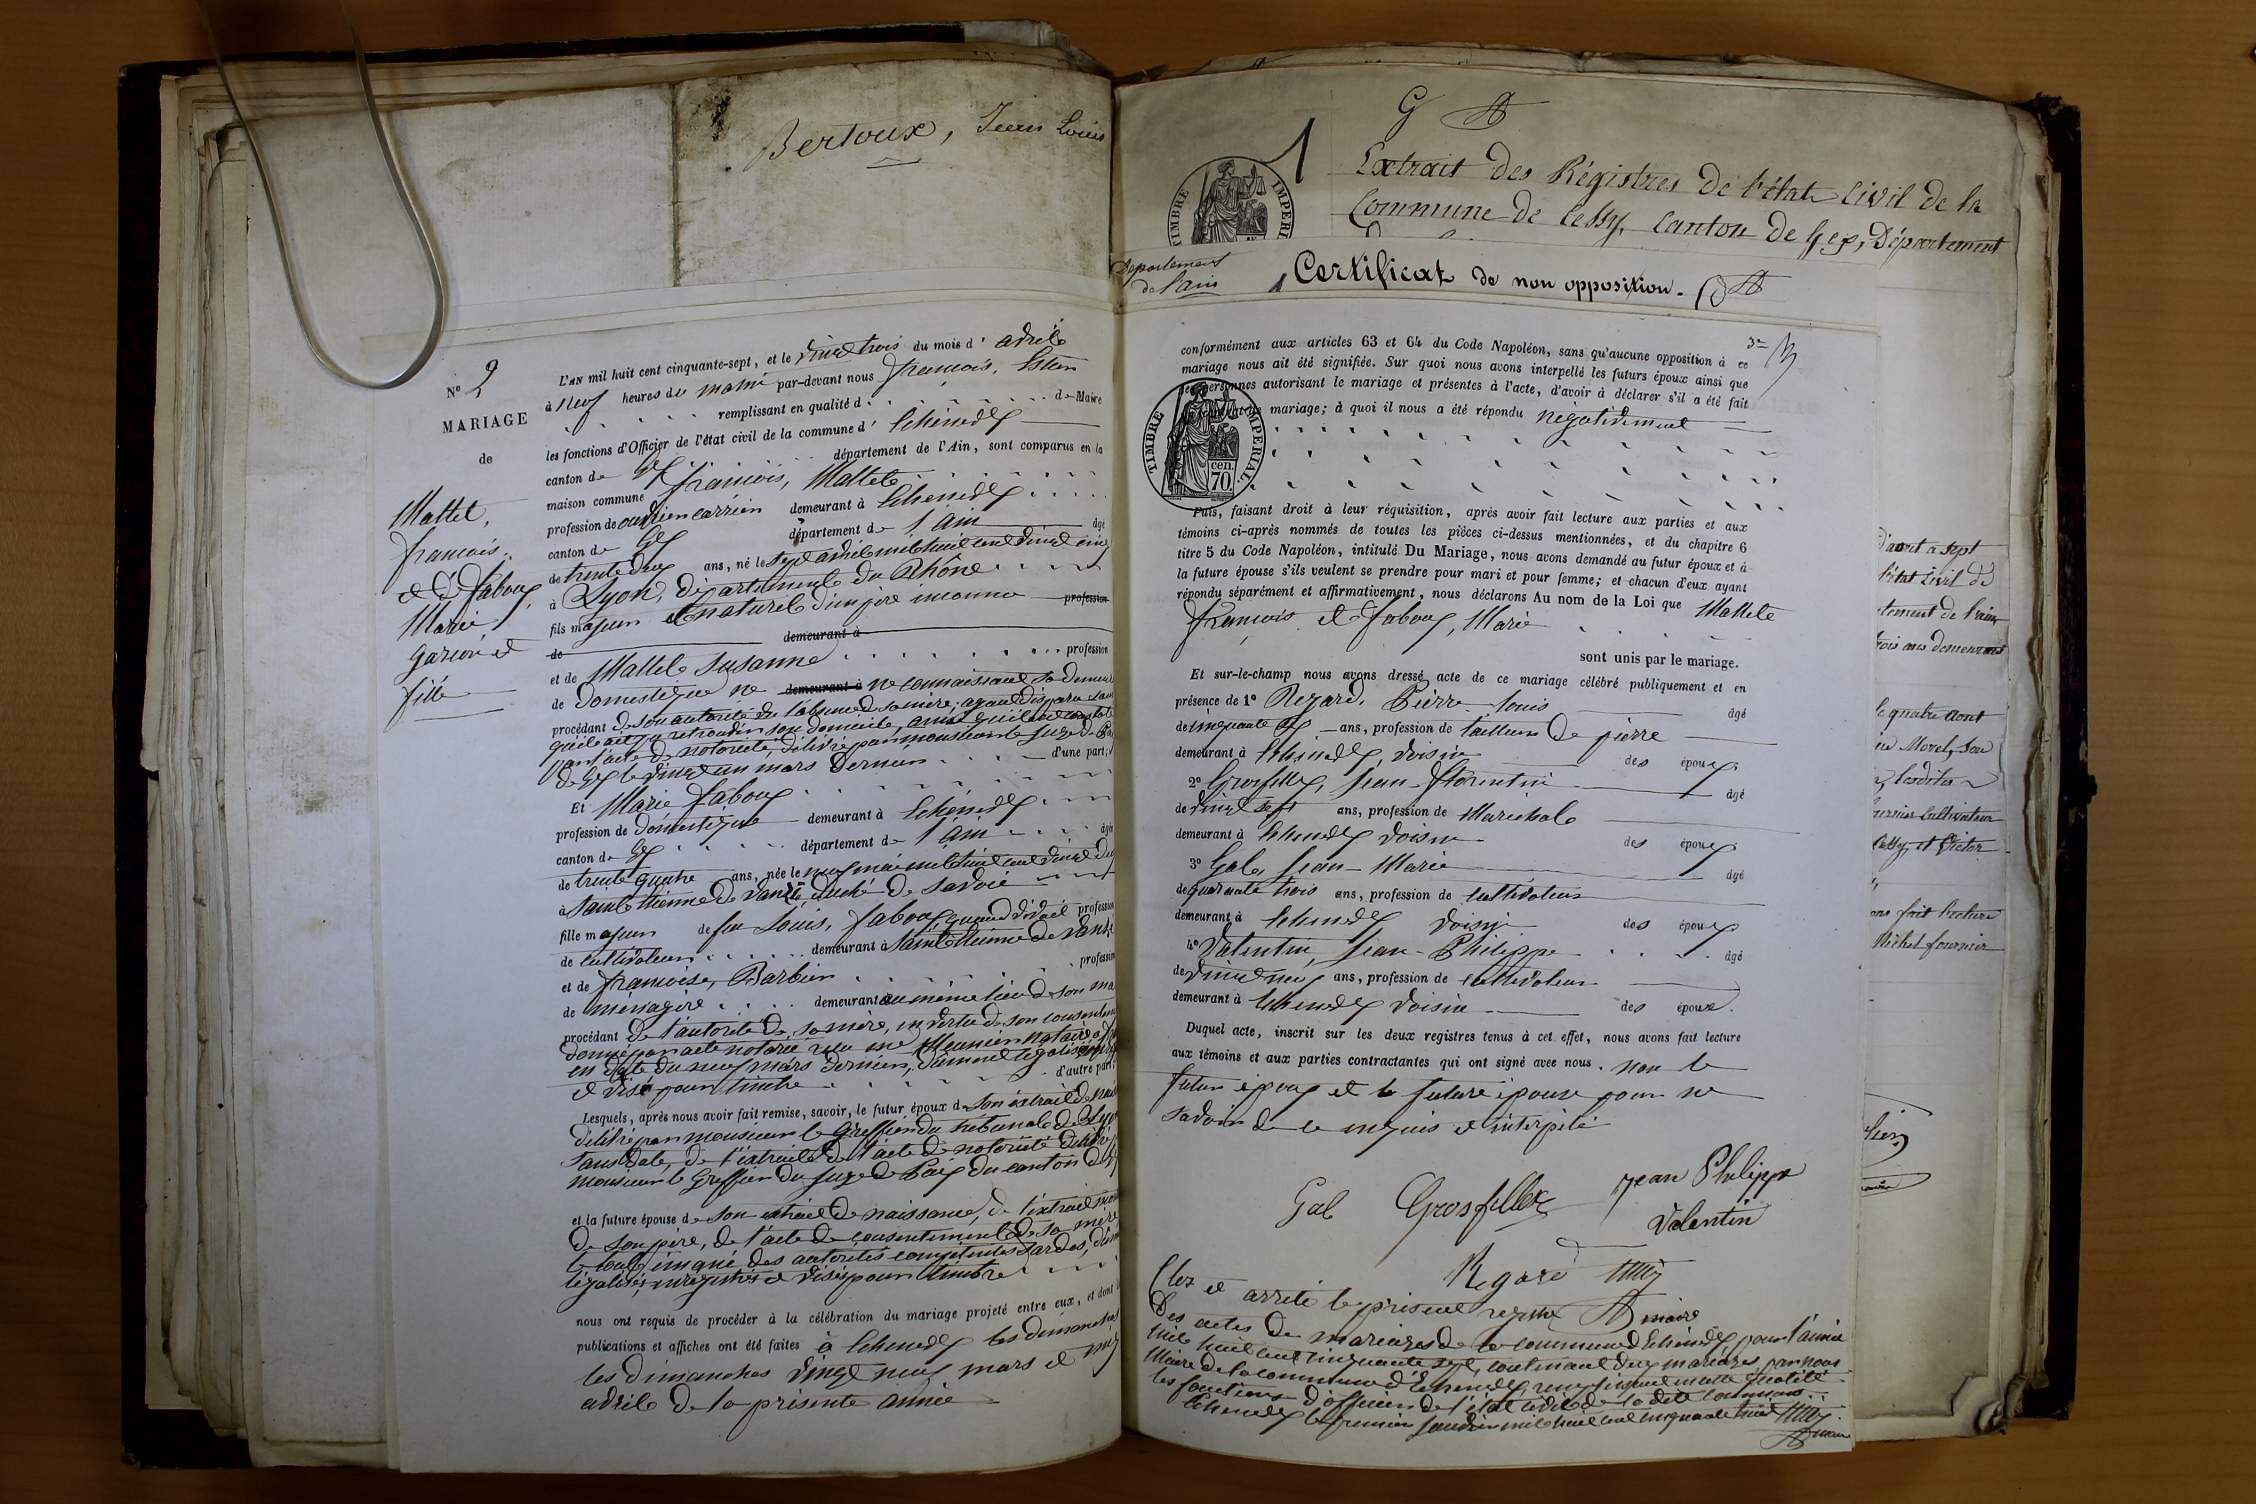 Bertoux, Jean Louis
N° 2
MARIAGE
de
Mattet,
françois.
et d faboux,
Marie
garçon et
fille
L'AN mil huit cent cinquante-sept, et le vingt trois du mois d' avril
à neuf heures du matin par-devant nous françois,
remplissant en qualité d de Maire
les fonctions d'Officier de l'état civil de la commune d' Echenevex
canton de Gex département de l'Ain, sont comparus en la
maison commune françois, Mattet
profession de carrier demeurant à Echenevex
canton de Gex département de l'ain âgé
de trente deux ans, né le sept avril mil huit cent vingt cinq
à Lyon, département du Rhône
fils majeur et naturel d'un père inconnu profession
de demeurant à
et de Mattet Susanne profession
de Domestique ne demeurant à ne connaissant sa demeure
procédant de son autorité vu l'absence de sa mère, ayant disparu sans
qu'il ait pu retrouver son domicile, ainsi qu'il est constaté
par l'acte de notoriété, délivré par monsieur le juge de Paix
de Gex le vingt un mars dernier d'une part;
Et Marie faboux
profession de Domestique demeurant à Echenevex
canton de Gex département de l'ain âgée
de trente quatre ans, née le neuf mai mil huit cent vingt deux
à Saint Etienne de duché de Savoie
fille majeure de feu Louis, faboux quand vivait profession
de cultivateur demeurant à Saint Etienne de
et de françoise, Barbier profession
de ménagère demeurant au même lieu de son
procédant de l'autorité de sa mère, en vertu de son consentement
donné par acte notarié reçu me Meunier notaire à
en date du neuf mars dernier, dument légalisé
et visé pour timbre d'autre part;
Lesquels, après nous avoir fait remise, savoir, le futur époux de son extrait de
délivré par monsieur le Greffier du tribunal de Lyon
sans date, de l'extrait de l'acte de notoriété délivré
monsieur le Greffier du juge de Paix du canton de
et la future épouse de son extrait de naissance, de l'extrait
de son père, de l'acte de consentement de sa mère
le tout émané des autorités compétentes Sardes,
légalisés, enregistrés et visés pour timbre
nous ont requis de procéder à la célébration du mariage projeté entre eux, et dont
publications et affiches ont été faites à Echenevex les dimanches
les dimanches vingt neuf mars et
avril de la présente année
G
1
TIMBRE IMPERI
Extrait des Régistres de l'état Civil de la
Commune de Cessy, Canton de Gex, Département
Departement
de l'ain
Certificat de non opposition.
conformément aux articles 63 et 64 du Code Napoléon, sans qu'aucune opposition à ce
mariage nous ait été signifiée. Sur quoi nous avons interpellé les futurs époux ainsi que
les personnes autorisant le mariage et présentes à l'acte, d'avoir à déclarer s'il a été fait
mariage; à quoi il nous a été répondu négativement
TIMBRE IMPERIAL
cen.
70.
Puis, faisant droit à leur réquisition, après avoir fait lecture aux parties et aux
témoins ci-après nommés de toutes les pièces ci-dessus mentionnées, et du chapitre 6
titre 5 du Code Napoléon, intitulé Du Mariage, nous avons demandé au futur époux et à
la future épouse s'ils veulent se prendre pour mari et pour femme; et chacun d'eux ayant
répondu séparément et affirmativement, nous déclarons Au nom de la Loi que Mattet
françois et faboux, Marie
sont unis par le mariage.
Et sur-le-champ nous avons dressé acte de ce mariage célébré publiquement et en
présence de 1° Regard, Pierre Louis âgé
de cinquante six ans, profession de tailleur de pierre
demeurant à Echenevex voisin des époux
2° Grosfillex, Jean florentin âgé
de vingt sept ans, profession de Maréchal
demeurant à Echenevex voisin des époux
3° Gal, Jean-Marie âgé
de quarante trois ans, profession de cultivateur
demeurant à Echenevex voisin des époux
4° Valentin, Jean-Philippe âgé
de vingt neuf ans, profession de cultivateur
demeurant à Echenevex voisin des époux.
Duquel acte, inscrit sur les deux registres tenus à cet effet, nous avons fait lecture
aux témoins et aux parties contractantes qui ont signé avec nous. non le
futur époux et la future épouse pour ne
savoir de ce enquis et interpelé
Gal Grosfillex Jean Philippe
Valentin
Regard
maire
Clos et arrêté le présent registre
Des actes de mariages de la commune d'Echenevex pour l'année
mil huit cent cinquante sept, contenant deux mariages par nous
Maire de la commune d'Echenevex, remplissant en cette qualité
les fonctions d'officier de l'état civil de la dite commune.
Echenevex le premier janvier mil huit cent cinquante huit
maire
d'aout a sept
l'état civil de
tement de l'ain
trois ans demeurant
le quatre aout
Morel, son
cultivateur
Cessy, et Victor
ons fait lecture
Michel fournier